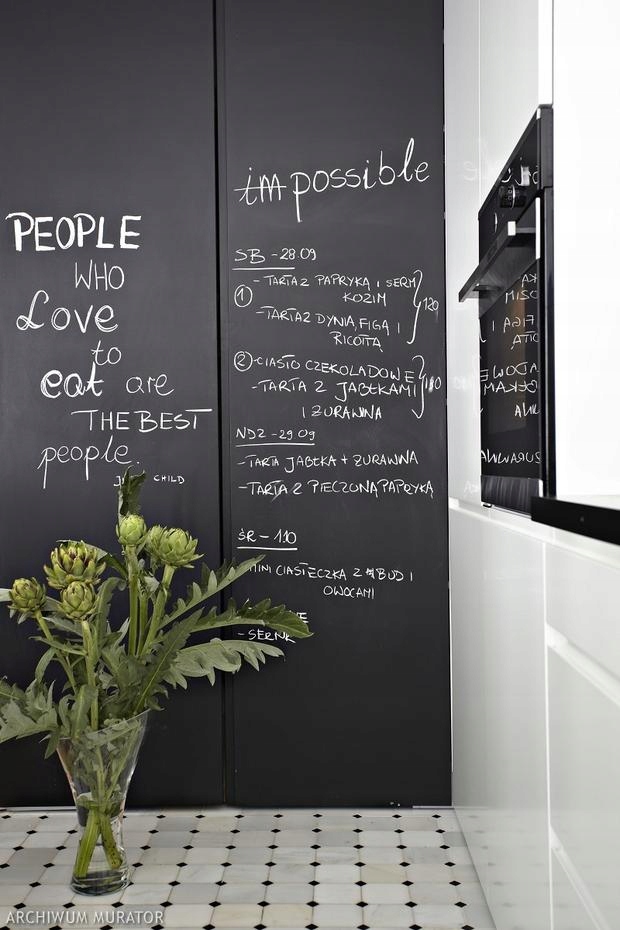 PEOPLE
WHO
Love
to
eat are
THE BEST
people
CHILD
impossible
SB - 28.09
1 - TARTA Z PAPRYKĄ I SEREM
KOZIM
- TARTA Z DYNIĄ, FIGĄ I
RICOTTĄ
120
2 - CIASTO CZEKOLADOWE
- TARTA Z JABŁKAMI
I ŻURAWINĄ
NDZ - 29.09
- TARTA JABŁKA + ŻURAWINA
- TARTA Z PIECZONĄ PAPRYKĄ
ŚR - 1.10
MINI CIASTECZKA Z BUD I
OWOCAMI
- SERNIK
ARCHIWUM MURATOR